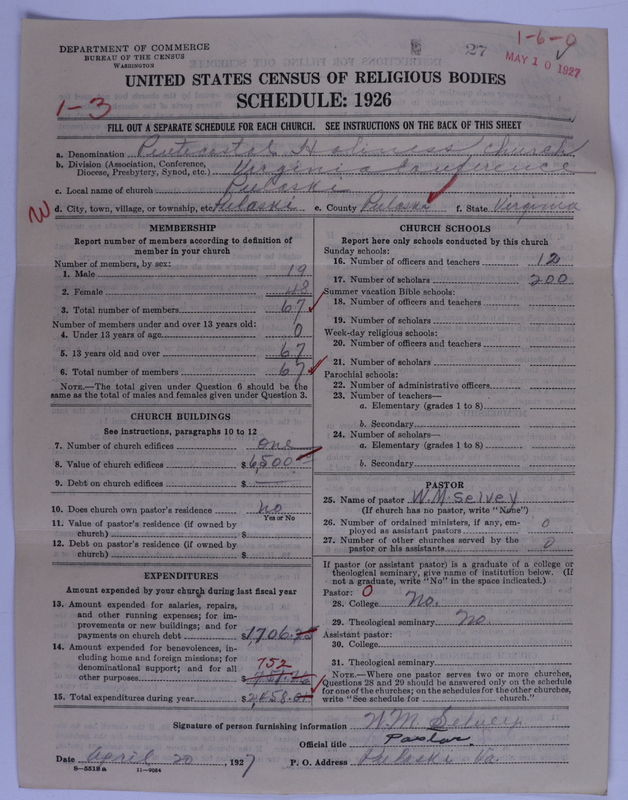 DEPARTMENT OF COMMERCE
BUREAU OF THE CENSUS
WASHINGTON
27
1-6-0
MAY 10 1927
UNITED STATES CENSUS OF RELIGIOUS BODIES
SCHEDULE: 1926
1-3
FILL OUT A SEPARATE SCHEDULE FOR EACH CHURCH. SEE INSTRUCTIONS ON THE BACK OF THIS SHEET
a. Denomination Pentecostal Holiness Church
b. Division (Association, Conference, Diocese, Presbytery, Synod, etc.) Virginia Conference
c. Local name of church Pulaski
W
d. City, town, village, or township, etc. Pulaski e. County Pulaski f. State Virginia
MEMBERSHIP
Report number of members according to definition of
member in your church
Number of members, by sex:
1. Male 19
2. Female 48
3. Total number of members 67
Number of members under and over 13 years old:
4. Under 13 years of age 0
5. 13 years old and over 67
6. Total number of members 67
NOTE.—The total given under Question 6 should be the
same as the total of males and females given under Question 3.
CHURCH BUILDINGS
See instructions, paragraphs 10 to 12
7. Number of church edifices one
8. Value of church edifices $6,500
9. Debt on church edifices $
10. Does church own pastor's residence No
Yes or No
11. Value of pastor's residence (if owned by
church) $
12. Debt on pastor's residence (if owned by
church) $
EXPENDITURES
Amount expended by your church during last fiscal year
13. Amount expended for salaries, repairs,
and other running expenses; for im-
provements or new buildings; and for
payments on church debt $1,706.
14. Amount expended for benevolences, in-
cluding home and foreign missions; for
denominational support; and for all
752
other purposes $
15. Total expenditures during year $2,458.
CHURCH SCHOOLS
Report here only schools conducted by this church
Sunday schools:
16. Number of officers and teachers 12
17. Number of scholars 200
Summer vacation Bible schools:
18. Number of officers and teachers
19. Number of scholars
Week-day religious schools:
20. Number of officers and teachers
21. Number of scholars
Parochial schools:
22. Number of administrative officers
23. Number of teachers—
a. Elementary (grades 1 to 8)
b. Secondary
24. Number of scholars—
a. Elementary (grades 1 to 8)
b. Secondary
PASTOR
25. Name of pastor W.M. Selvey
(If church has no pastor, write "None")
26. Number of ordained ministers, if any, em-
ployed as assistant pastors 0
27. Number of other churches served by the
pastor or his assistants 0
If pastor (or assistant pastor) is a graduate of a college or
theological seminary, give name of institution below. (If
not a graduate, write "No" in the space indicated.)
Pastor: 0
28. College No.
29. Theological seminary No
Assistant pastor:
30. College
31. Theological seminary
NOTE.—Where one pastor serves two or more churches,
Questions 28 and 29 should be answered only on the schedule
for one of the churches; on the schedules for the other churches,
write "See schedule for church."
Signature of person furnishing information W.M. Selvey
Official title Pastor
Date April 20, 1927 P. O. Address Pulaski Va.
8-5518a 11-9084